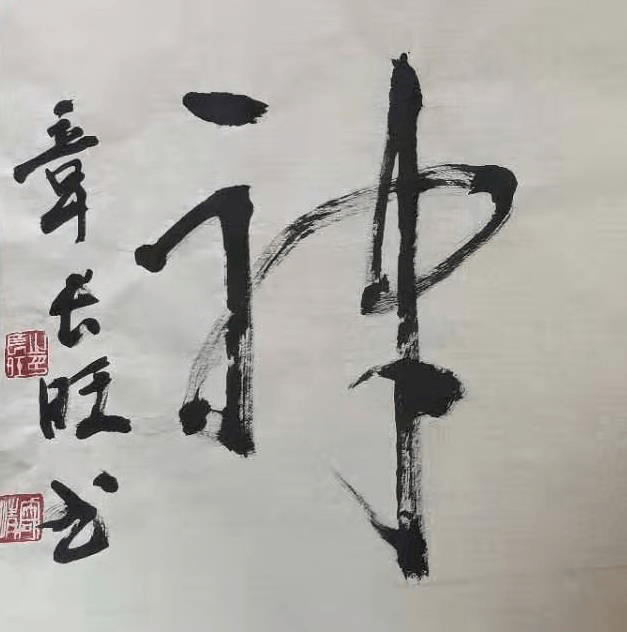 神
章长旺书